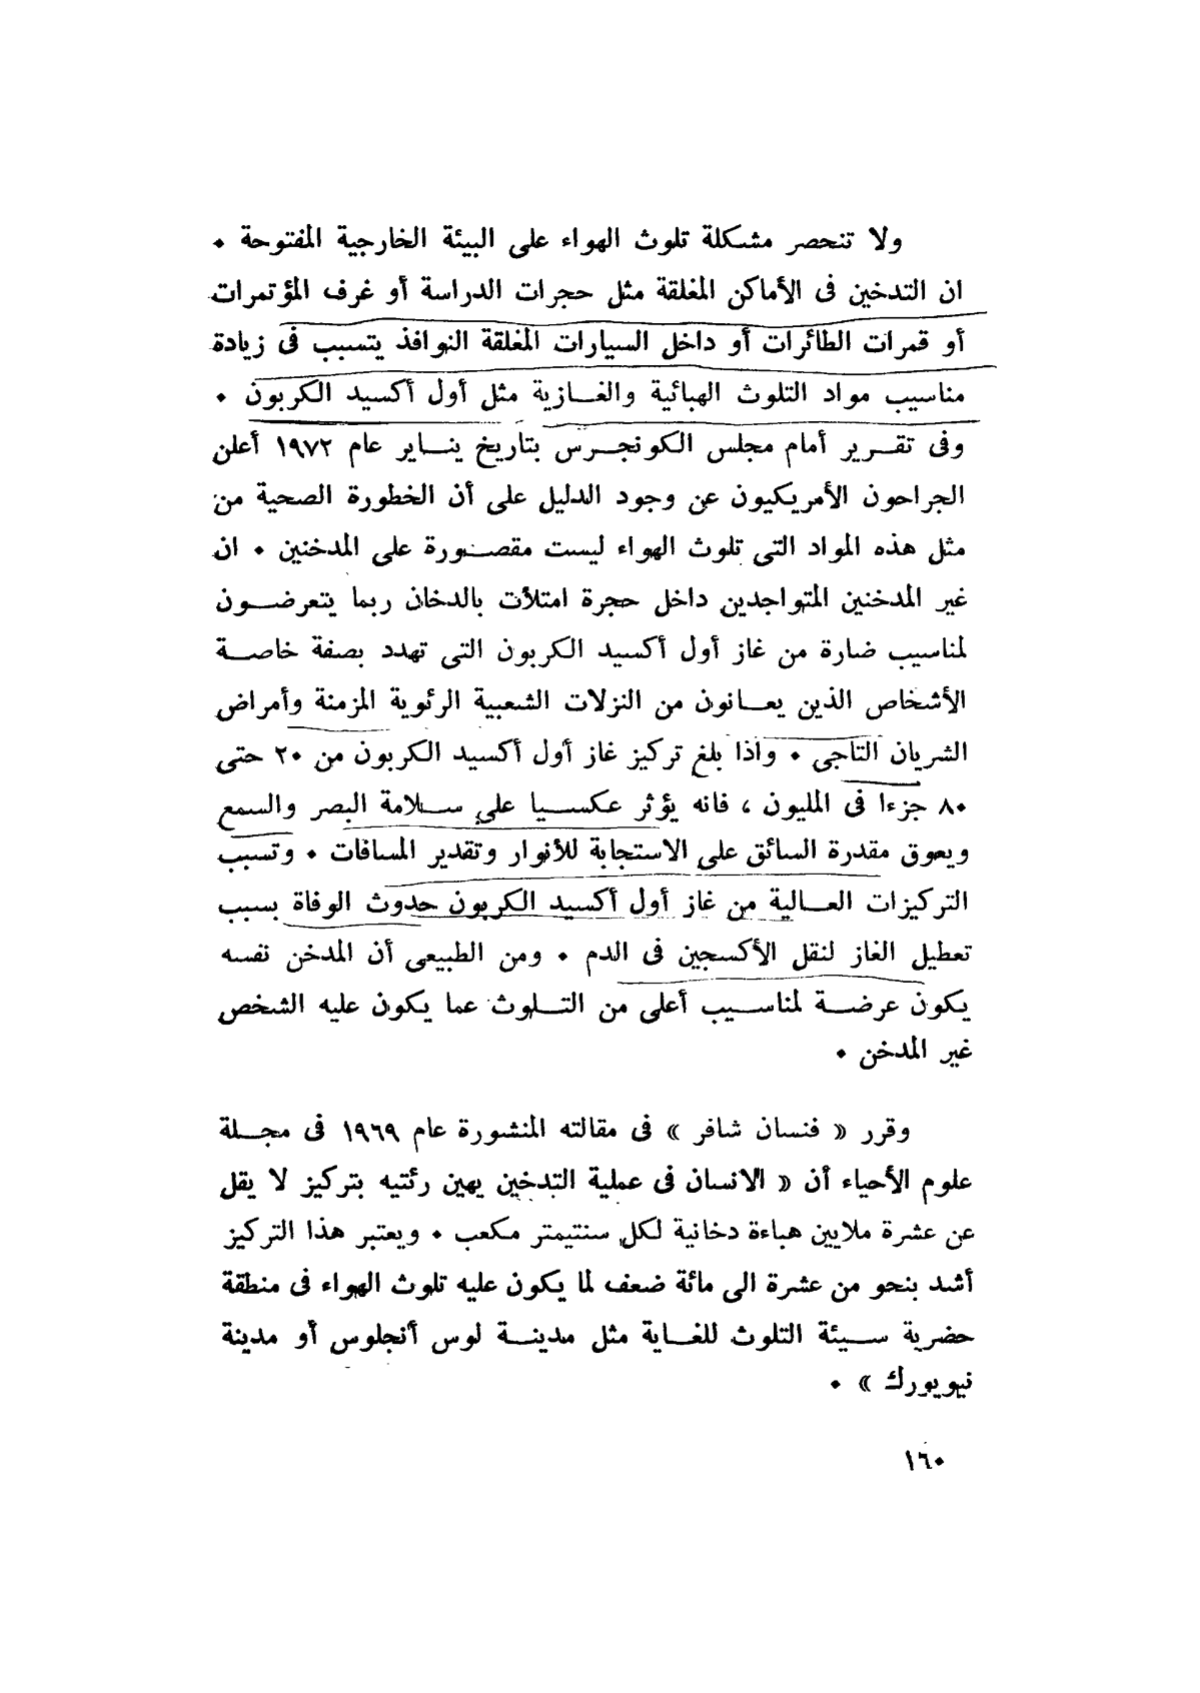 ولا تنحصر مشكلة تلوث الهواء على البيئة الخارجية المفتوحة ٠
ان التدخين فى الأماكن المغلقة مثل حجرات الدراسة أو غرف المؤتمرات
أو قمرات الطائرات أو داخل السيارات المغلقة النوافذ يتسبب فى زيادة
مناسيب مواد التلوث الهبائية والغازية مثل أول أكسيد الكربون ٠
وفى تقرير أمام مجلس الكونجرس بتاريخ يناير عام ١٩٧٢ أعلن
الجراحون الأمريكيون عن وجود الدليل على أن الخطورة الصحية من
مثل هذه المواد التى تلوث الهواء ليست مقصورة على المدخنين ٠ ان
غير المدخنين المتواجدين داخل حجرة امتلأت بالدخان ربما يتعرضون
لمناسيب ضارة من غاز أول أكسيد الكربون التى تهدد بصفة خاصة
الأشخاص الذين يعانون من النزلات الشعبية الرئوية المزمنة وأمراض
الشريان التاجى ٠ واذا بلغ تركيز غاز أول أكسيد الكربون من ٢٠ حتى
٨٠ جزءا فى المليون ، فانه يؤثر عكسيا على سلامة البصر والسمع
ويعوق مقدرة السائق على الاستجابة للأنوار وتقدير المسافات ٠ وتسبب
التركيزات العالية من غاز أول أكسيد الكربون حدوث الوفاة بسبب
تعطيل الغاز لنقل الأكسجين فى الدم ٠ ومن الطبيعى أن المدخن نفسه
يكون عرضة لمناسيب أعلى من التلوث عما يكون عليه الشخص
غير المدخن ٠
وقرر « فنسان شافر » فى مقالته المنشورة عام ١٩٦٩ فى مجلة
علوم الأحياء أن « الانسان فى عملية التدخين يهين رئتيه بتركيز لا يقل
عن عشرة ملايين هباءة دخانية لكل سنتيمتر مكعب ٠ ويعتبر هذا التركيز
أشد بنحو من عشرة الى مائة ضعف لما يكون عليه تلوث الهواء فى منطقة
حضرية سيئة التلوث للغاية مثل مدينة لوس أنجلوس أو مدينة
نيويورك » ٠
١٦٠